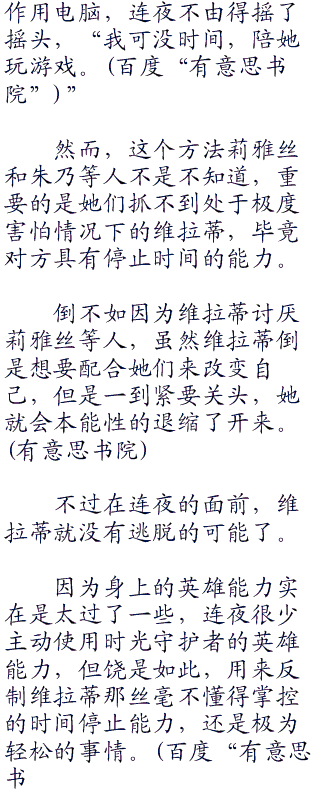 作用电脑，连夜不由得摇了
摇头，“我可没时间，陪她
玩游戏。(百度“有意思书
院”)”
然而，这个方法莉雅丝
和朱乃等人不是不知道，重
要的是她们抓不到处于极度
害怕情况下的维拉蒂，毕竟
对方具有停止时间的能力。
倒不如因为维拉蒂讨厌
莉雅丝等人，虽然维拉蒂倒
是想要配合她们来改变自
己，但是一到紧要关头，她
就会本能性的退缩了开来。
(有意思书院)
不过在连夜的面前，维
拉蒂就没有逃脱的可能了。
因为身上的英雄能力实
在是太过了一些，连夜很少
主动使用时光守护者的英雄
能力，但饶是如此，用来反
制维拉蒂那丝毫不懂得掌控
的时间停止能力，还是极为
轻松的事情。(百度“有意思
书